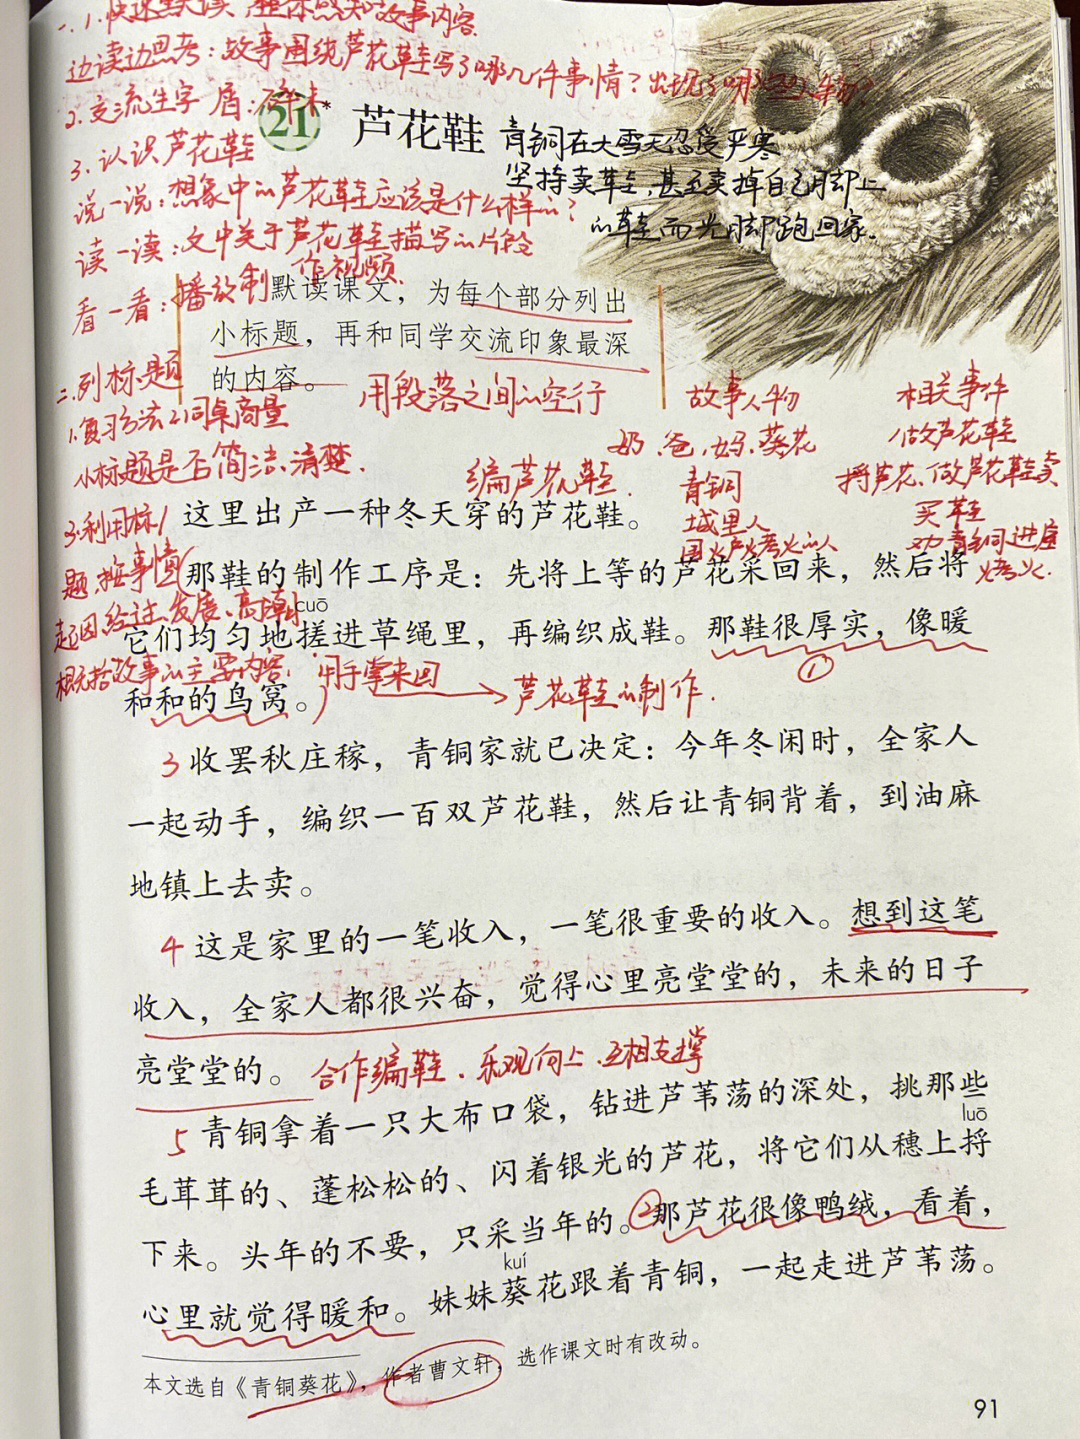 一.1.快速默读,整体感知故事内容.
边读边思考:故事围绕芦花鞋写了哪几件事情?出现了哪些人物?
2.交流生字
3.认识芦花鞋
说一说:想象中的芦花鞋应该是什么样的?
读一读:文中关于芦花鞋描写的片段
看一看:播放制作视频
21* 芦花鞋
青铜在大雪天忍受严寒
坚持卖草鞋,甚至卖掉自己脚上
的鞋而光脚跑回家.
默读课文,为每个部分列出
小标题,再和同学交流印象最深
的内容。
用段落之间的空行
二.列标题
1.复习方法2.同桌商量
小标题是否简洁、清楚.
3.利用标
题,按事情
起因、经过、发展、高潮
概括故事的主要内容.
故事人物 相关事件
奶、爸、妈、葵花 做芦花鞋
青铜 捋芦花、做芦花鞋卖
城里人 买鞋
围火炉烤火的人 劝青铜进屋
烤火.
编芦花鞋.
1 这里出产一种冬天穿的芦花鞋。
那鞋的制作工序是:先将上等的芦花采回来,然后将
cuō
它们均匀地搓进草绳里,再编织成鞋。那鞋很厚实,像暖
①
和和的鸟窝。
用手掌来回
芦花鞋的制作.
3 收罢秋庄稼,青铜家就已决定:今年冬闲时,全家人
一起动手,编织一百双芦花鞋,然后让青铜背着,到油麻
地镇上去卖。
4 这是家里的一笔收入,一笔很重要的收入。想到这笔
收入,全家人都很兴奋,觉得心里亮堂堂的,未来的日子
亮堂堂的。
合作编鞋、乐观向上、互相支撑
5 青铜拿着一只大布口袋,钻进芦苇荡的深处,挑那些
luō
毛茸茸的、蓬松松的、闪着银光的芦花,将它们从穗上捋
下来。头年的不要,只采当年的。②那芦花很像鸭绒,看着,
kuí
心里就觉得暖和。妹妹葵花跟着青铜,一起走进芦苇荡。
本文选自《青铜葵花》,作者曹文轩,选作课文时有改动。
91